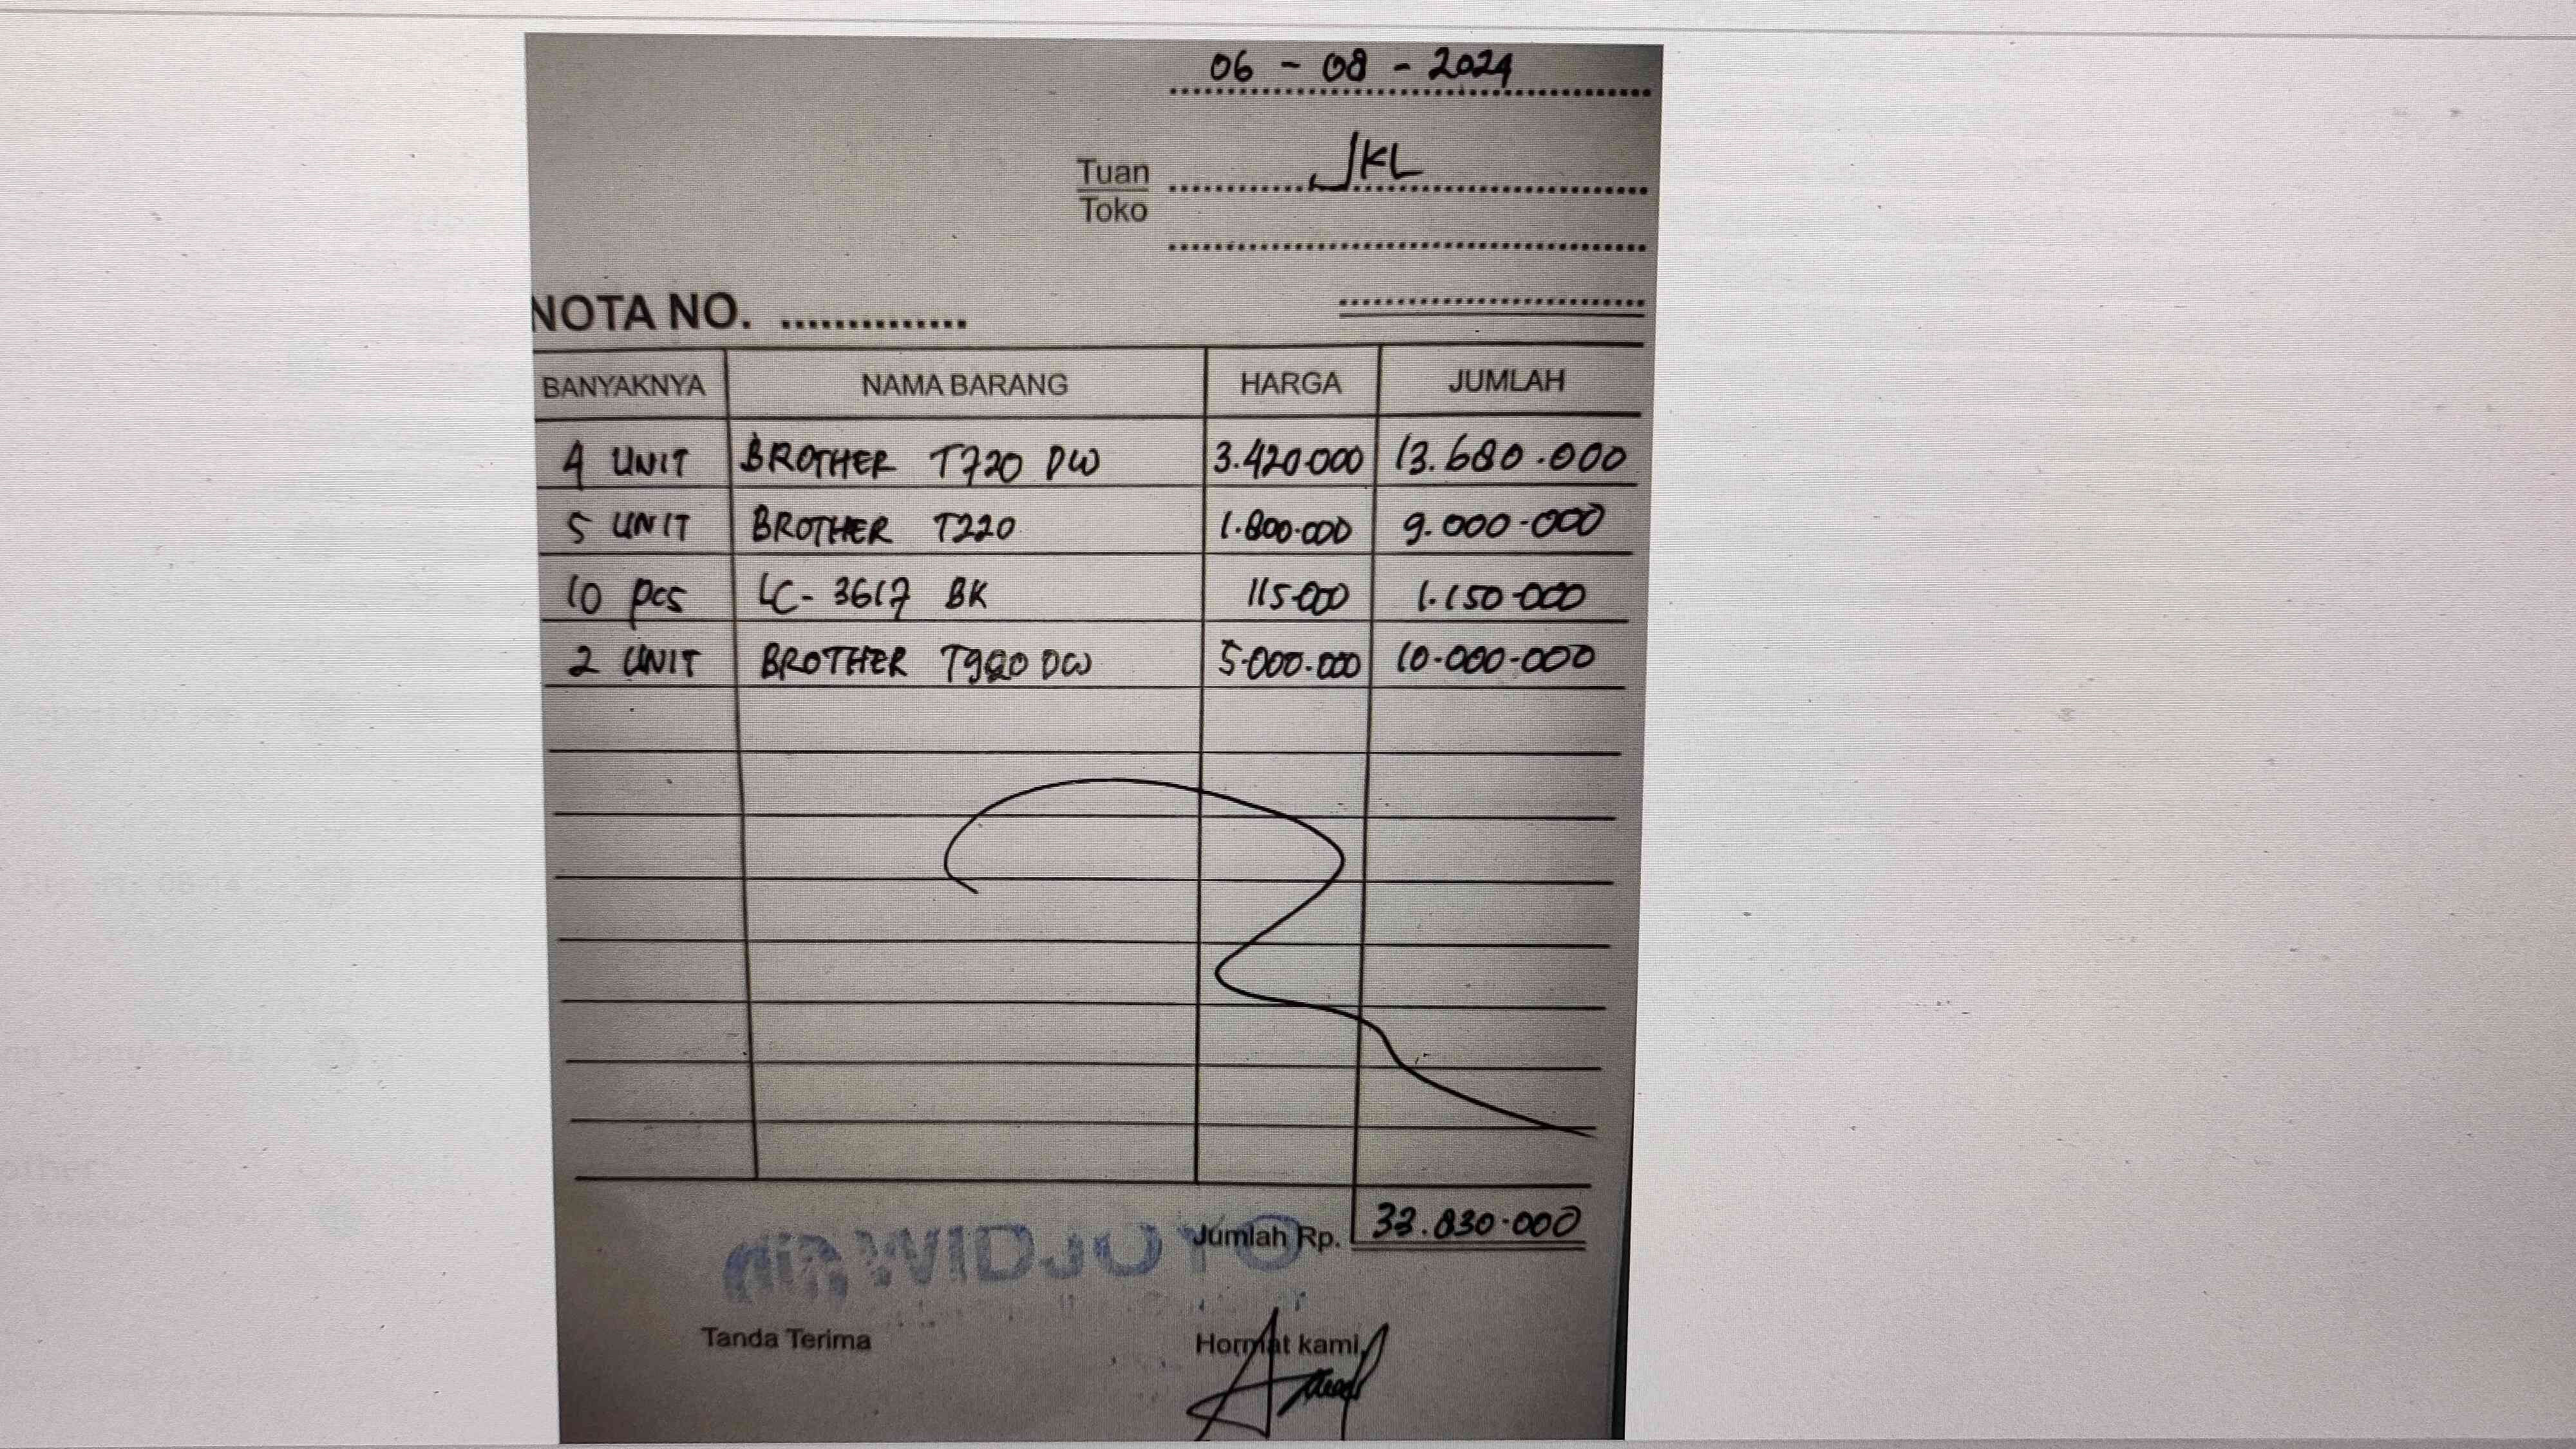 06 - 08 - 2024
Tuan JKL
Toko
NOTA NO. ..............
BANYAKNYA NAMA BARANG HARGA JUMLAH
4 UNIT BROTHER T720 DW 3.420.000 13.680.000
5 UNIT BROTHER T220 1.800.000 9.000.000
10 pcs LC-3617 BK 115.000 1.150.000
2 UNIT BROTHER T920 DW 5.000.000 10.000.000
Jumlah Rp. 33.830.000
WIDJOYO
Tanda Terima Hormat kami,